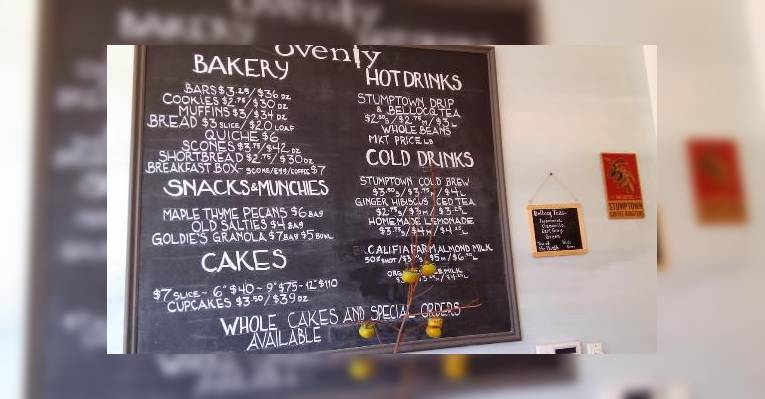 ovenly
BAKERY
BARS $3.25/$36 DZ
COOKIES $2.75/$30 DZ
MUFFINS $3/$34 DZ
BREAD $3 SLICE/$20 LOAF
QUICHE $6
SCONES $3.75/$42 DZ
SHORTBREAD $2.75/$30 DZ
BREAKFAST BOX- SCONE/EGG/COFFEE $7
SNACKS & MUNCHIES
MAPLE THYME PECANS $6 BAG
OLD SALTIES $4 BAG
GOLDIE'S GRANOLA $7 BAG $5 BOWL
CAKES
$7 SLICE - 6" $40 - 9" $75 - 12" $110
CUPCAKES $3.50/$39 DZ
WHOLE CAKES AND SPECIAL ORDERS
AVAILABLE
HOT DRINKS
STUMPTOWN DRIP
& BELLOCQ TEA
WHOLE BEANS
MKT PRICE LB
COLD DRINKS
STUMPTOWN COLD BREW
GINGER HIBISCUS ICED TEA
HOMEMADE LEMONADE
CALIFIA FARM ALMOND MILK
MILK
Bellocq Teas
STUMPTOWN
COFFEE ROASTERS